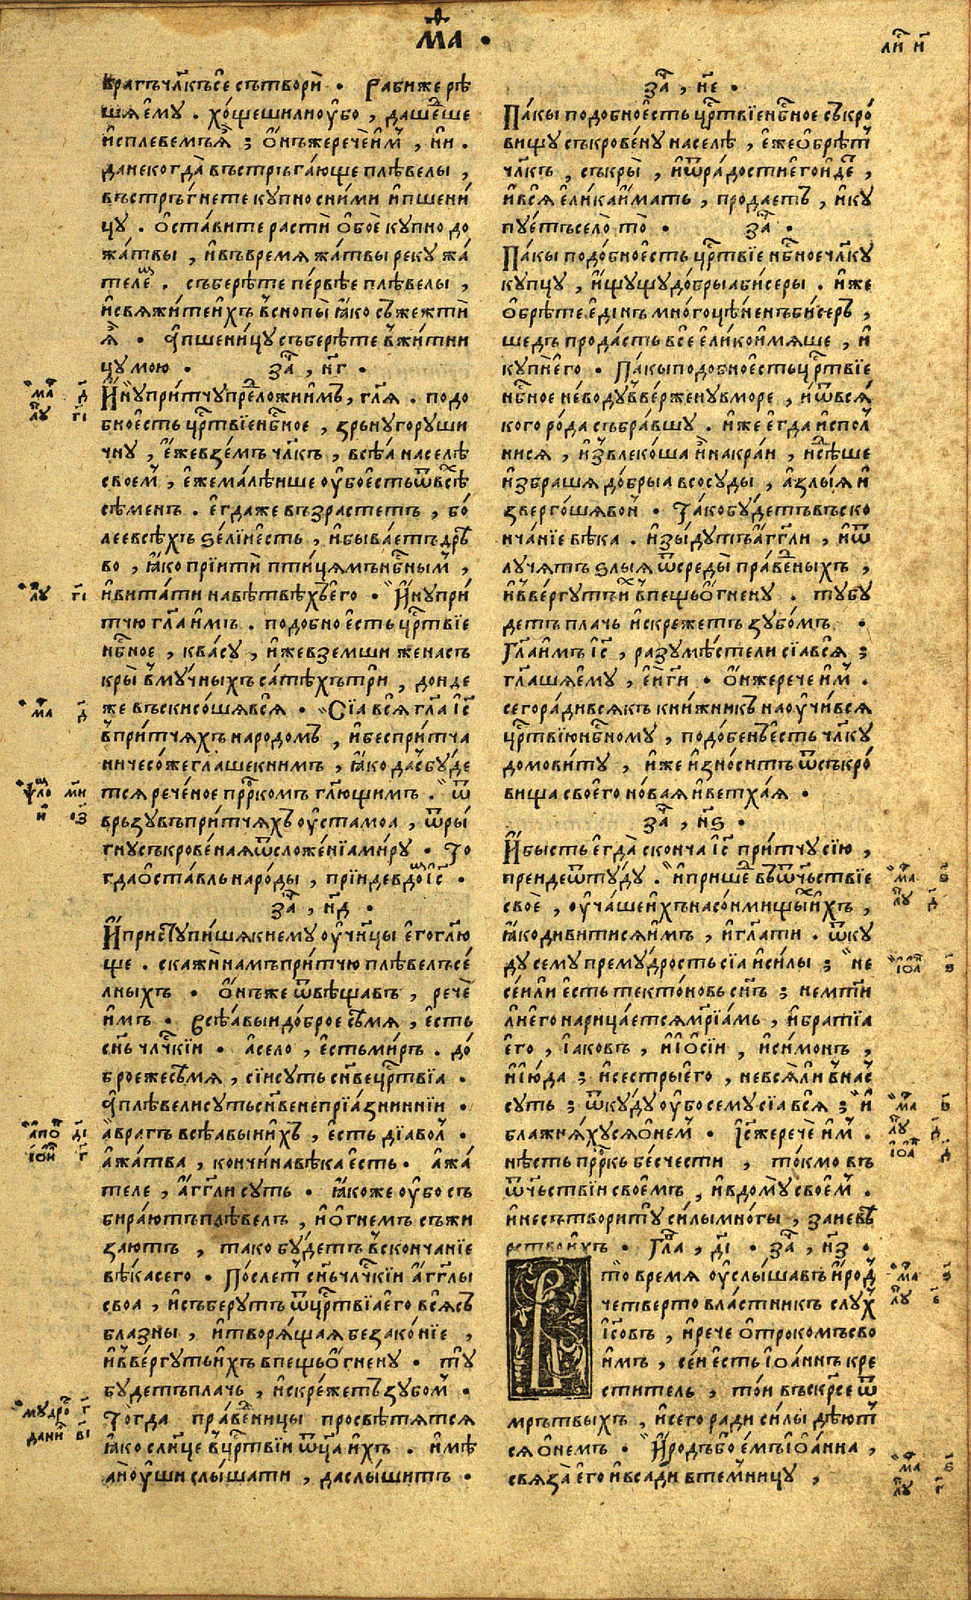 Маⷴ҇.
ли н҃
врагъ чл҃къ се сътвори . Раби же рѣ
шя ему . хощеши ли оубо , да шеⷣше
исплевемъ ꙗ ; онъ же рече иⷨ , ни .
да некогда въстръгающе плѣвелы ,
въстръгнете купно с ними и пшени
цу . оставите расти обое купно до
жатвы , и въ время жатвы реку жа
телеⷨ . съберѣте первѣе плѣвелы ,
и свяжите ихъ в снопы ꙗко съжежти
ꙗ . а пшеницу съберѣте в житни
цу мою . заⷱ҇ , н҃г .
Ину притчу преⷣложи имъ , гл҃я . подо
бно есть црⷭ҇твїе нбⷭ҇ное , зрьну горуши
чну , еже вземъ чл҃къ , всѣа на селѣ
своеⷨ , еже малѣише оубо есть ѿ всѣⷯ
сѣменъ . егда же възрастетъ , бо
лее всѣхъ ѕелїи есть , и бываетъ дрⷡ҇е
во , ꙗко прїити птицямъ нбⷭ҇нымъ ,
и витати на вѣтвѣхъ его . Ину при
тчю гл҃а имъ . подобно есть црⷭ҇твїе
нбⷭ҇ное , квасу , иже вземши жена съ
кры в мучныхъ сатѣхъ три , донде
же въскисошя вся . Сїа вся гл҃а і҃с
в притчяхъ народомъ , и бес притча
ничесоже глаше к нимъ , ꙗко да сбуде
тся реченое прⷪ҇ркомъ гл҃ющимъ . ѿ
врьзу въ притчяхъ оуста моа , ѿры
гну съкровенаа ѿ сложенїа миру . То
гда оставль народы , прїиде в доⷨ і҃с .
заⷱ҇ , н҃д .
И приступишя к нему оучн҃цы его глю
ще . скажи намъ притчю плѣвелъ се
лныхъ . Онъ же ѿвѣщавъ , рече
имъ . Всѣавыи доброе сѣмя , есть
сн҃ъ чл҃чкїи . а село , есть миръ . до
брое же сѣмя , сїи суть сн҃ве црⷭ҇твїа .
а плѣвели суть сн҃ве непрїазниннїи .
а врагъ всѣавыи ихъ , есть дїаволъ .
а жатва , кончина вѣка есть . а жа
теле , аг҃гли суть . ꙗкоже оубо съ
бираютъ плѣвелъ , и огнемъ съжи
заютъ , тако будетъ в скончание
вѣка сего . Послетъ сн҃ъ чл҃чкїи аг҃глы
своа , и съберутъ ѿ црⷭ҇твїа его вся съ
блазны , и творящая безаконїе ,
и ввергуть ихъ в пещь огнену . ту
будетъ плачь , и скрежетъ зубомъ .
Тогда праведницы просвѣтятся
ꙗко слн҃це в црⷭ҇твїи ѿц҃а ихъ . имѣ
аи оуши слышати , да слышитъ .
заⷱ҇ , н҃е .
Пакы подобно есть црⷭ҇твїе нбⷭ҇ное съкро
вищу съкровену на селѣ , еже обрѣтъ
чл҃къ , съкры , и ѿ радости его идеⷮ ,
и вся елика имать , продаетъ , и ку
пуетъ село то . заⷱ҇ .
Пакы подобно есть црⷭ҇твїе нбⷭ҇ное чл҃ку
купцу , ищущу добры а бисеры . иже
обрѣте единъ многоцѣненъ бисеръ ,
шедъ продасть все елико имяше , и
купи его . Пакы подобно есть црⷭ҇твїе
нбⷭ҇ное неводу ввержену в море , и ѿ вся
кого рода събравшу . иже егда испол
нися , извлекоша и на краи , и сѣⷣше
избрашя добрыа в сосуды , а злыя и
звергошя вон . Тако будетъ въ ско
нчание вѣка . изыдутъ аг҃гли , и ѿ
лучятъ ѕлыя ѿ среды праведныхъ ,
и ввергуть иⷯ в пещь огнену . ту бу
детъ плачь и скрежетъ зубомъ .
Гл҃а имъ і҃с , разумѣсте ли сїа вся ;
глашя ему , еи ги . Он же рече имъ .
сего ради всякъ книжникъ наоучився
црⷭ҇твїю нбⷭ҇ному , подобенъ есть чл҃ку
домовиту , иже износитъ ѿ съкро
вища своего новая и ветхая .
заⷱ҇ , н҃ѕ .
И бысть егда сконча і҃с притчу сїю ,
преиде ѿтуду . И пришеⷣ въ ѿчьствїе
свое , оучаше ихъ на сонмищыⷯ ихъ ,
ꙗко дивитися имъ , и гл҃ати . ѿку
ду сему премудрость сїа и силы ; не
сеи ли есть тектоновъ сн҃ъ ; не мт҃и
ли его нарицается мр҃їамь , и братїа
его , іаковъ , и іосїи , и симонъ ,
и іюда ; и сестры его , не вся ли в насъ
суть ; ѿкуду оубо сему сїа вся ; и
блажняхуся о немъ . І҃с же рече имъ .
нѣсть прⷪ҇ркъ бесчести , токмо въ
ѿчьствїи своемъ , и в дому своемъ .
и не сътвори ту силы многы , за невѣ
рство ихъ . Гл҃а , д҃і . заⷱ҇ , н҃з .
В то время оуслышавъ ирод
четверто властникъ слухъ
і҃совъ , и рече отрокомъ сво
имъ , сеи есть іоаннъ кре
ститель , тои въскр҃се ѿ
мрътвыхъ , и сего ради силы дѣютъ
ся о немъ . Иродъ бо емъ іоанна ,
связа его и всади в темницу ,